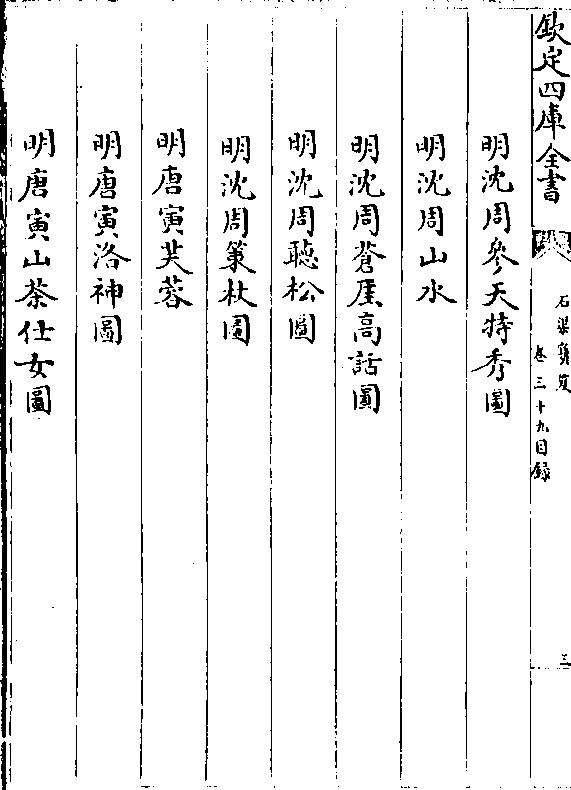 欽定四庫全書
石渠寶笈
卷三十九目錄
三
明沈周參天特秀圖
明沈周山水
明沈周蒼厓高話圖
明沈周聽松圖
明沈周策杖圖
明唐寅芙蓉
明唐寅洛神圖
明唐寅山茶仕女圖